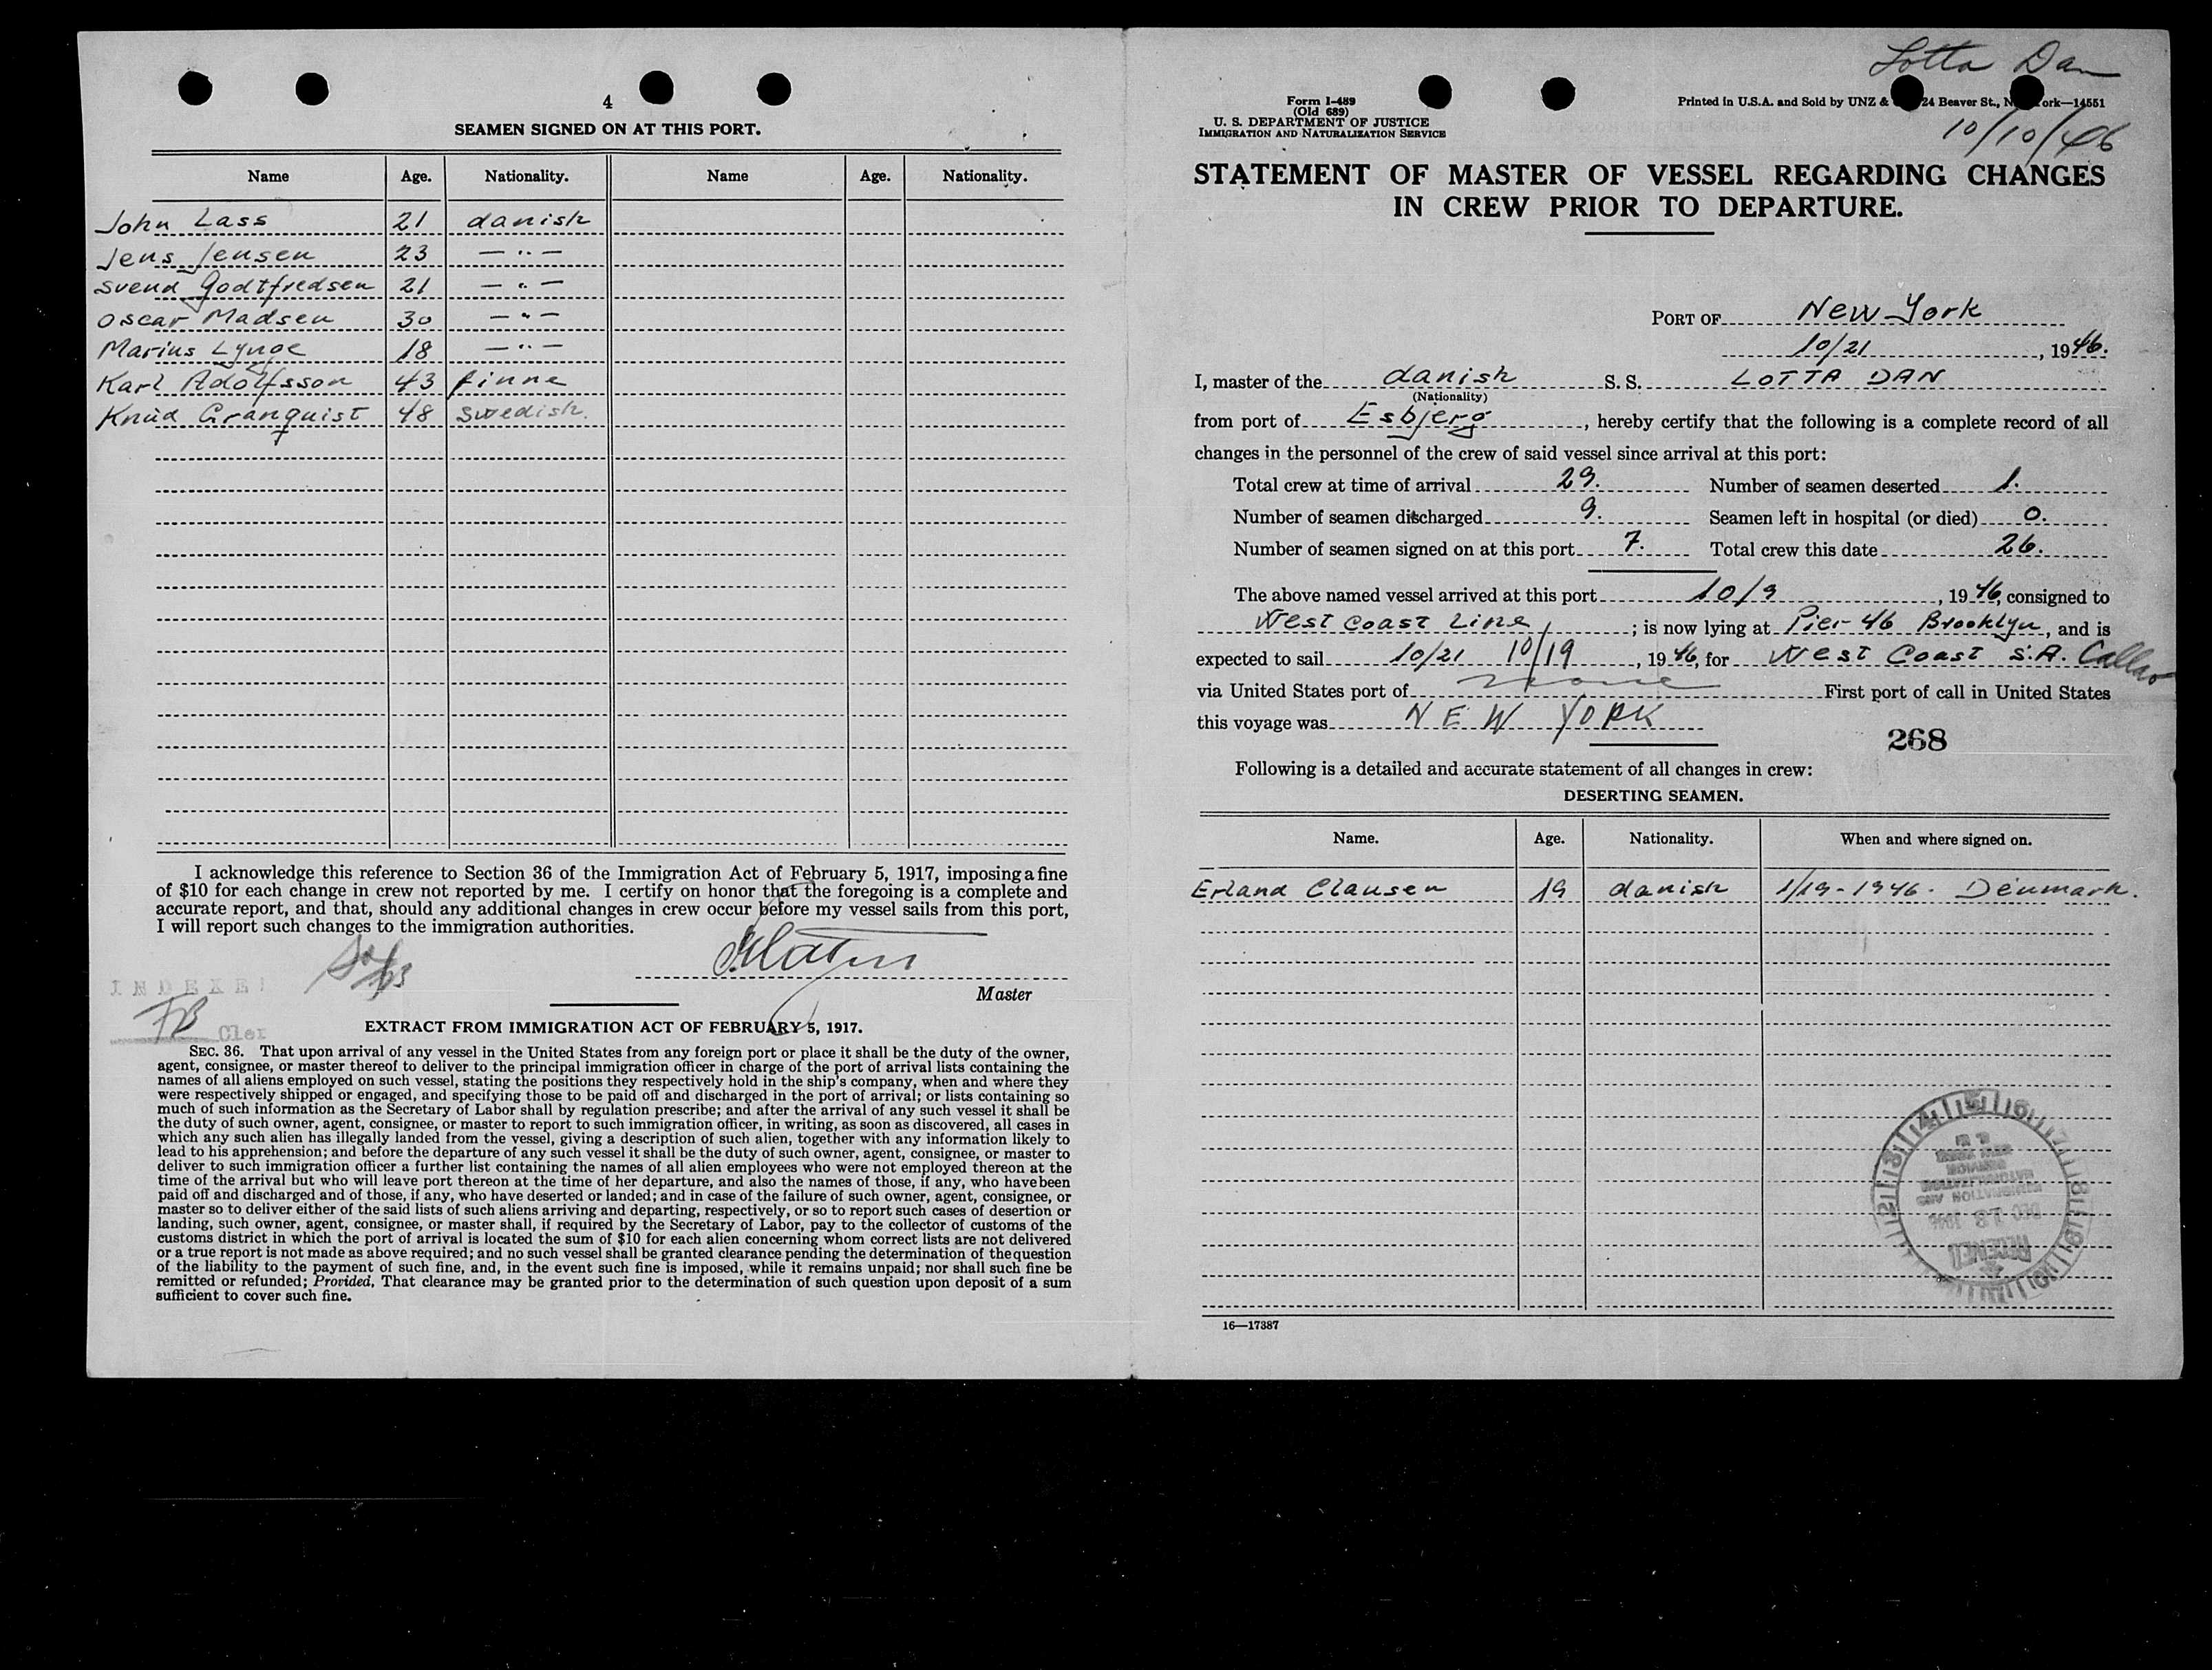 4
SEAMEN SIGNED ON AT THIS PORT.
Name Age. Nationality. Name Age. Nationality.
John Lass 21 danish
Jens Jensen 23 — " —
Svend Godtfredsen 21 — " —
Oscar Madsen 30 — " —
Marius Lynge 18 — " —
Karl Adolfsson 43 finne
Knud Granquist 48 swedish.
I acknowledge this reference to Section 36 of the Immigration Act of February 5, 1917, imposing a fine
of $10 for each change in crew not reported by me. I certify on honor that the foregoing is a complete and
accurate report, and that, should any additional changes in crew occur before my vessel sails from this port,
I will report such changes to the immigration authorities.
Master
INDEXE
FB Cler
EXTRACT FROM IMMIGRATION ACT OF FEBRUARY 5, 1917.
SEC. 36. That upon arrival of any vessel in the United States from any foreign port or place it shall be the duty of the owner,
agent, consignee, or master thereof to deliver to the principal immigration officer in charge of the port of arrival lists containing the
names of all aliens employed on such vessel, stating the positions they respectively hold in the ship's company, when and where they
were respectively shipped or engaged, and specifying those to be paid off and discharged in the port of arrival; or lists containing so
much of such information as the Secretary of Labor shall by regulation prescribe; and after the arrival of any such vessel it shall be
the duty of such owner, agent, consignee, or master to report to such immigration officer, in writing, as soon as discovered, all cases in
which any such alien has illegally landed from the vessel, giving a description of such alien, together with any information likely to
lead to his apprehension; and before the departure of any such vessel it shall be the duty of such owner, agent, consignee, or master to
deliver to such immigration officer a further list containing the names of all alien employees who were not employed thereon at the
time of the arrival but who will leave port thereon at the time of her departure, and also the names of those, if any, who have been
paid off and discharged and of those, if any, who have deserted or landed; and in case of the failure of such owner, agent, consignee, or
master so to deliver either of the said lists of such aliens arriving and departing, respectively, or so to report such cases of desertion or
landing, such owner, agent, consignee, or master shall, if required by the Secretary of Labor, pay to the collector of customs of the
customs district in which the port of arrival is located the sum of $10 for each alien concerning whom correct lists are not delivered
or a true report is not made as above required; and no such vessel shall be granted clearance pending the determination of the question
of the liability to the payment of such fine, and, in the event such fine is imposed, while it remains unpaid; nor shall such fine be
remitted or refunded; Provided, That clearance may be granted prior to the determination of such question upon deposit of a sum
sufficient to cover such fine.
Lotta Dan
Form I-489
(Old 689)
U. S. DEPARTMENT OF JUSTICE
IMMIGRATION AND NATURALIZATION SERVICE
Printed in U.S.A. and Sold by UNZ & 24 Beaver St., N ork—14551
10/10/46
STATEMENT OF MASTER OF VESSEL REGARDING CHANGES
IN CREW PRIOR TO DEPARTURE.
PORT OF New York
10/21, 1946.
I, master of the danish S. S. LOTTA DAN
(Nationality)
from port of Esbjerg, hereby certify that the following is a complete record of all
changes in the personnel of the crew of said vessel since arrival at this port:
Total crew at time of arrival 29. Number of seamen deserted 1.
Number of seamen discharged 9. Seamen left in hospital (or died) 0.
Number of seamen signed on at this port 7. Total crew this date 26.
The above named vessel arrived at this port 10/9, 1946, consigned to
West Coast Line; is now lying at Pier 46 Brooklyn, and is
expected to sail 10/21 10/19, 1946, for West Coast S.A. Callao
via United States port of none First port of call in United States
this voyage was NEW YORK
268
Following is a detailed and accurate statement of all changes in crew:
DESERTING SEAMEN.
Name. Age. Nationality. When and where signed on.
Erland Clausen 19 danish 1/19-1946. Denmark.
16—17387